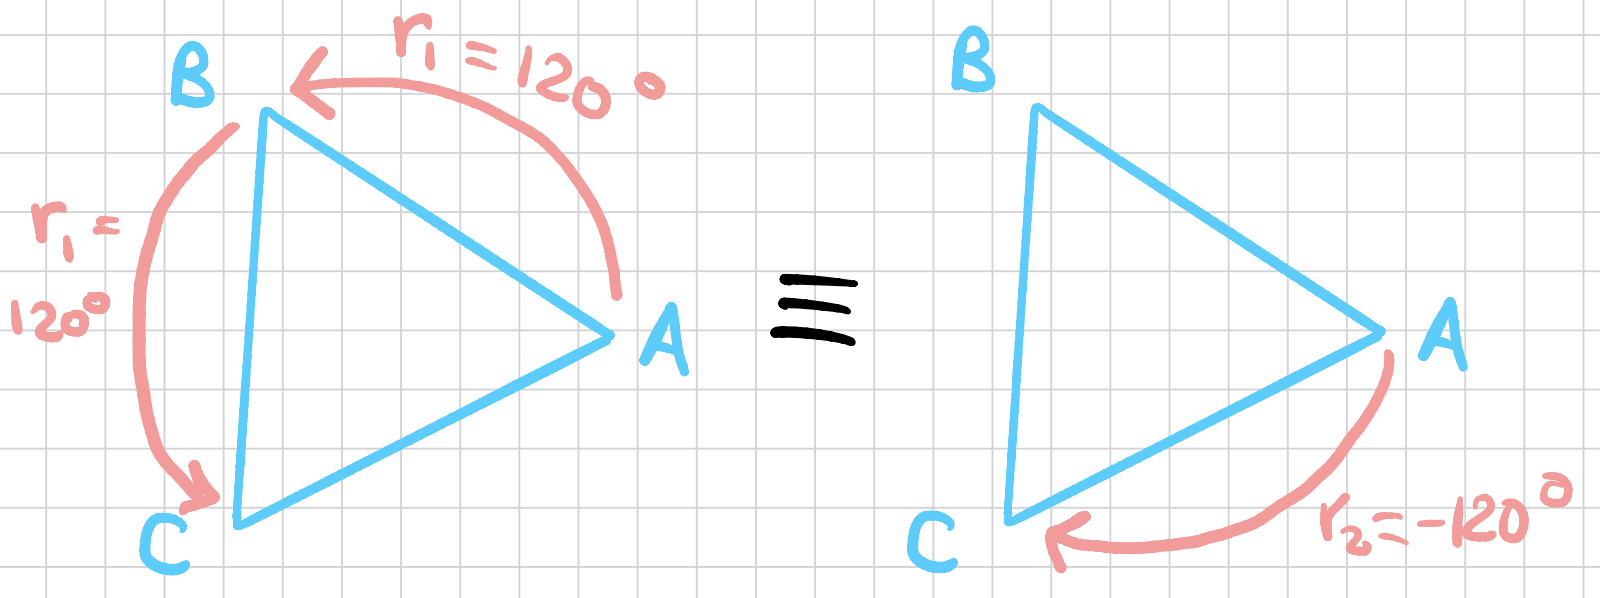 r₁ = 120°
B
r₁ =
120°
A
C
≡
B
A
C
r₂ = -120°